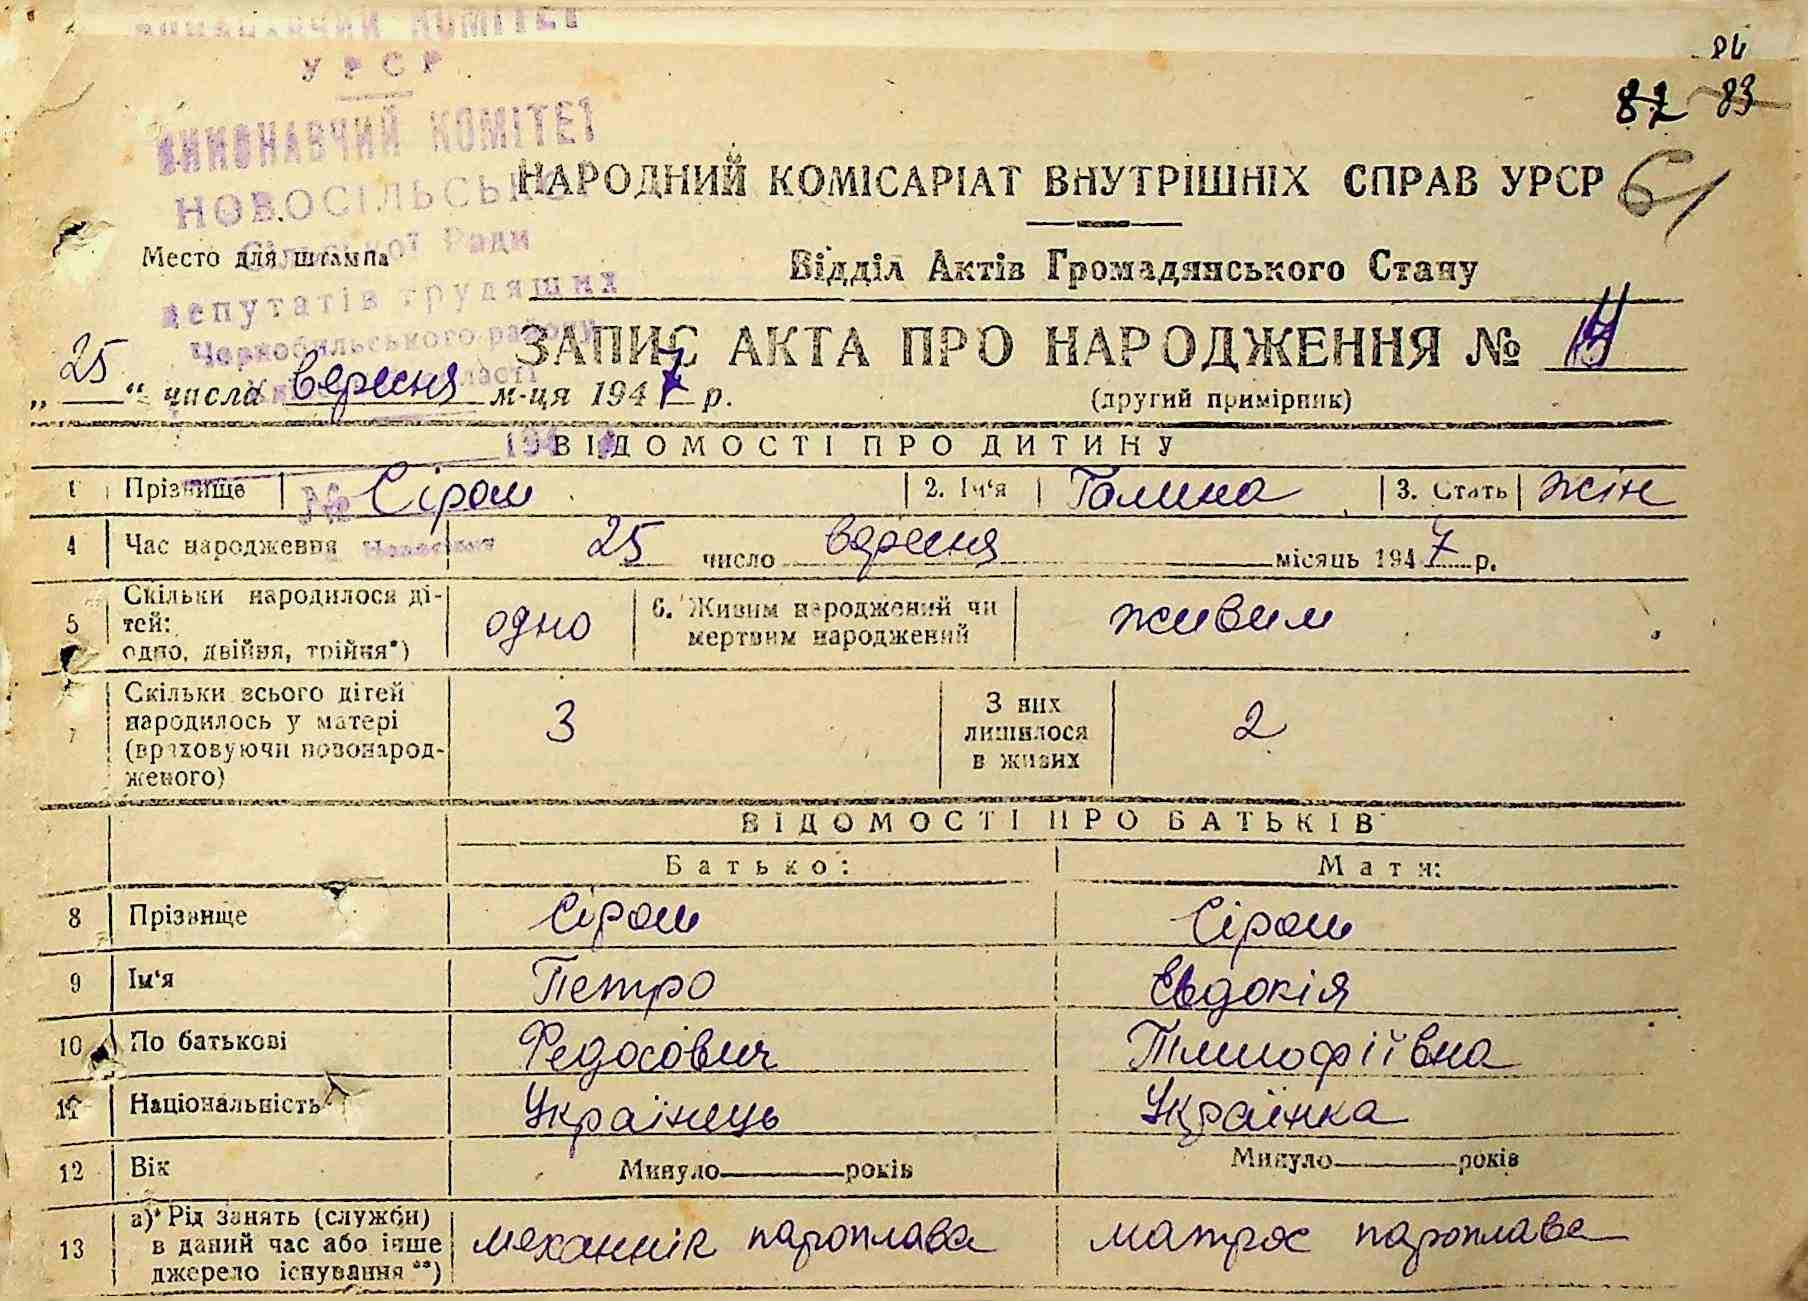 ВИКОНАВЧИЙ КОМІТЕТ
УРСР
84
87 83
ВИКОНАВЧИЙ КОМІТЕТ
НАРОДНИЙ КОМІСАРІАТ ВНУТРІШНІХ СПРАВ УРСР 61
НОВОСІЛЬСЬКОЇ
Сільської Ради
Место для штампа
Відділ Актів Громадянського Стану
депутатів трудящих
Чорнобильського району
ЗАПИС АКТА ПРО НАРОДЖЕННЯ №
(другий примірник)
„25“ числа вересня м-ця 1947 р.
194
ВІДОМОСТІ ПРО ДИТИНУ
1 Прізвище № Сірош 2. Ім'я Галина 3. Стать жін
4 Час народження 25 число вересня місяць 1947 р.
5 Скільки народилося ді-
тей:
одно, двійня, трійня*) одно 6. Живим народжений чи
мертвим народжений живим
7 Скільки всього дітей
народилось у матері
(враховуючи новонарод-
женого) 3 З них
лишилося
в живих 2
ВІДОМОСТІ ПРО БАТЬКІВ
Батько: Мати:
8 Прізвище Сірош Сірош
9 Ім'я Петро Евдокія
10 По батькові Федосович Тимофіївна
11 Національність Українець Українка
12 Вік Минуло років Минуло років
13 а) Рід занять (служби)
в даний час або інше
джерело існування **) механнік пароплава матрос пароплава